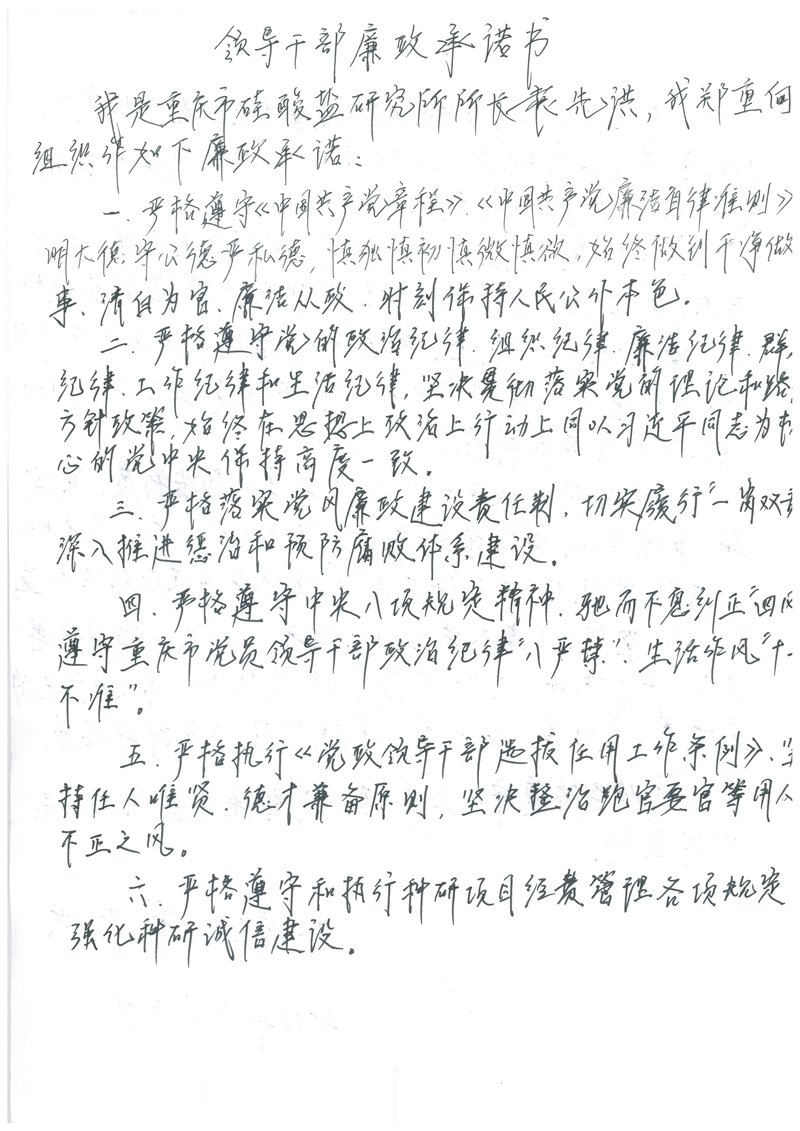 领导干部廉政承诺书
我是重庆市硅酸盐研究所所长 先洪，我郑重向
组织作如下廉政承诺：
一、严格遵守《中国共产党章程》、《中国共产党廉洁自律准则》
明大德、守公德、严私德，慎独慎初慎微慎欲，始终做到干净做
事、清白为官、廉洁从政、时刻保持人民公仆本色。
二、严格遵守党的政治纪律、组织纪律、廉洁纪律、群
纪律、工作纪律和生活纪律，坚决贯彻落实党的理论和路
方针政策，始终在思想上政治上行动上同以习近平同志为
心的党中央保持高度一致。
三、严格落实党风廉政建设责任制，切实履行“一岗双
深入推进惩治和预防腐败体系建设。
四、严格遵守中央八项规定精神，驰而不息纠正“四风
遵守重庆市党员领导干部政治纪律“八严禁”、生活作风“十
不准”。
五、严格执行《党政领导干部选拔任用工作条例》、坚
持任人唯贤、德才兼备原则，坚决整治跑官要官等用人
不正之风。
六、严格遵守和执行科研项目经费管理各项规定
强化科研诚信建设。